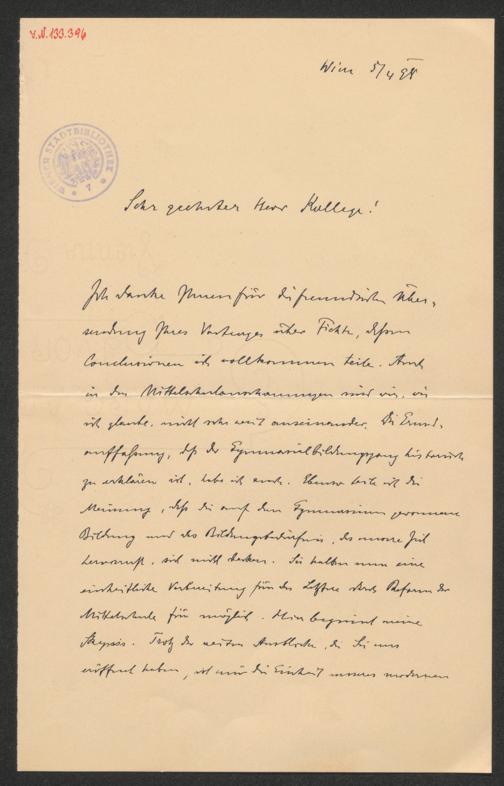 V.N. 133.396
Wien 5/4 98
WIENER STADTBIBLIOTHEK
7
Sehr geehrter Herr Kollege!
Ich danke Ihnen für die freundliche Über-
sendung Ihres Vortrages über Fichte, dessen
Conclusionen ich vollkommen teile. Auch
in den Mittelschulanschauungen sind wir, wie
ich glaube, nicht sehr weit auseinander. Die Grund-
auffassung, daß der Gymnasialbildungsgang historisch
zu erklären ist, habe ich auch. Ebenso teile ich die
Meinung, daß die auf den Gymnasien gewonnene
Bildung und das Bildungsbedürfnis, das unsere Zeit
hervorruft, sich nicht decken. Sie halten nun eine
einheitliche Vorbereitung für das Letztere durch Reform der
Mittelschule für möglich. Hier beginnt meine
Skepsis. Trotz der weiten Ausblicke, die Sie uns
eröffnet haben, ist mir die Einheit unseres modernen